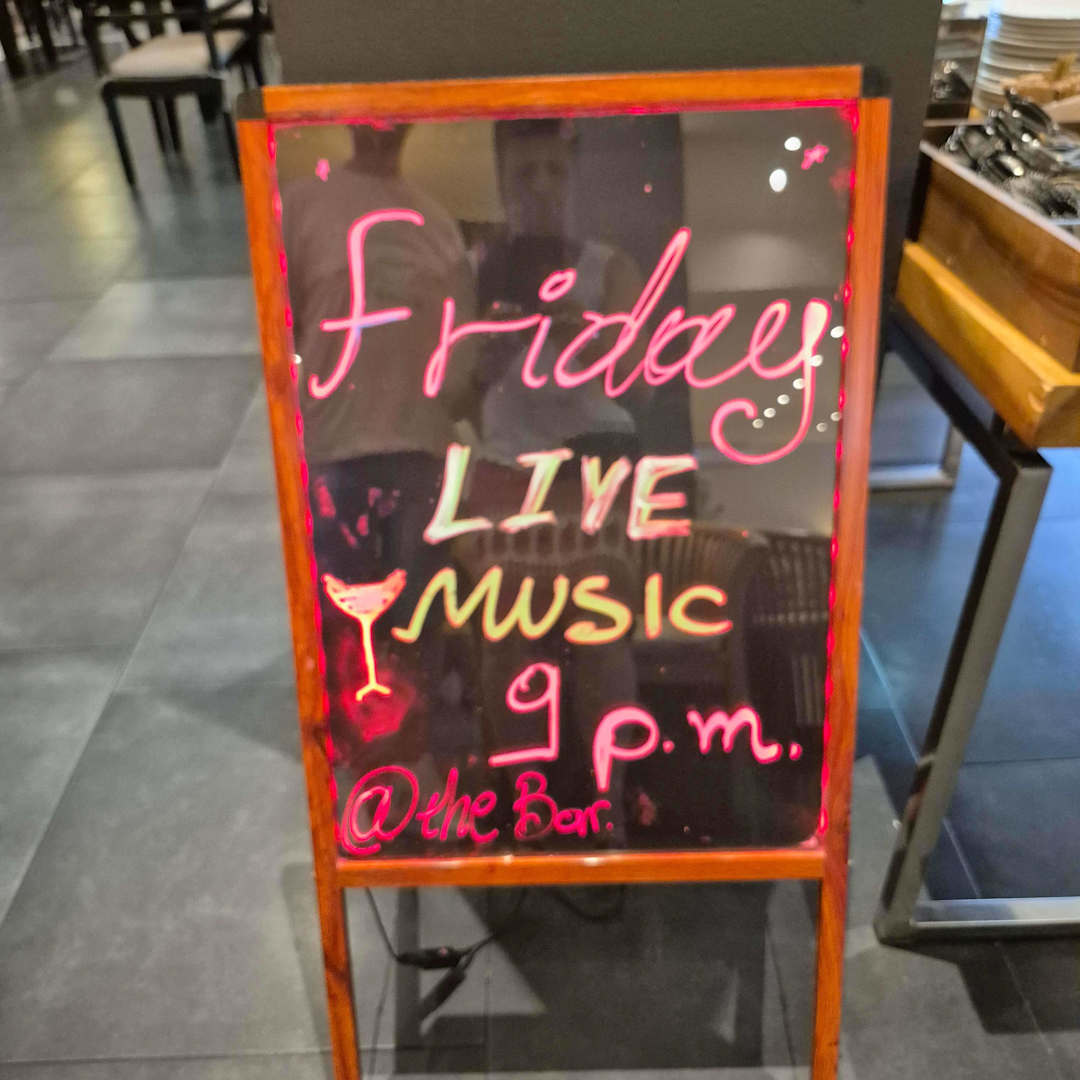 friday
LIVE
MUSIC
9 p.m.
@the Bar.